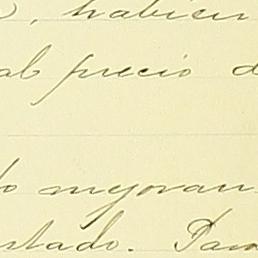 habien
al precio d
do mejoran
stado. Para